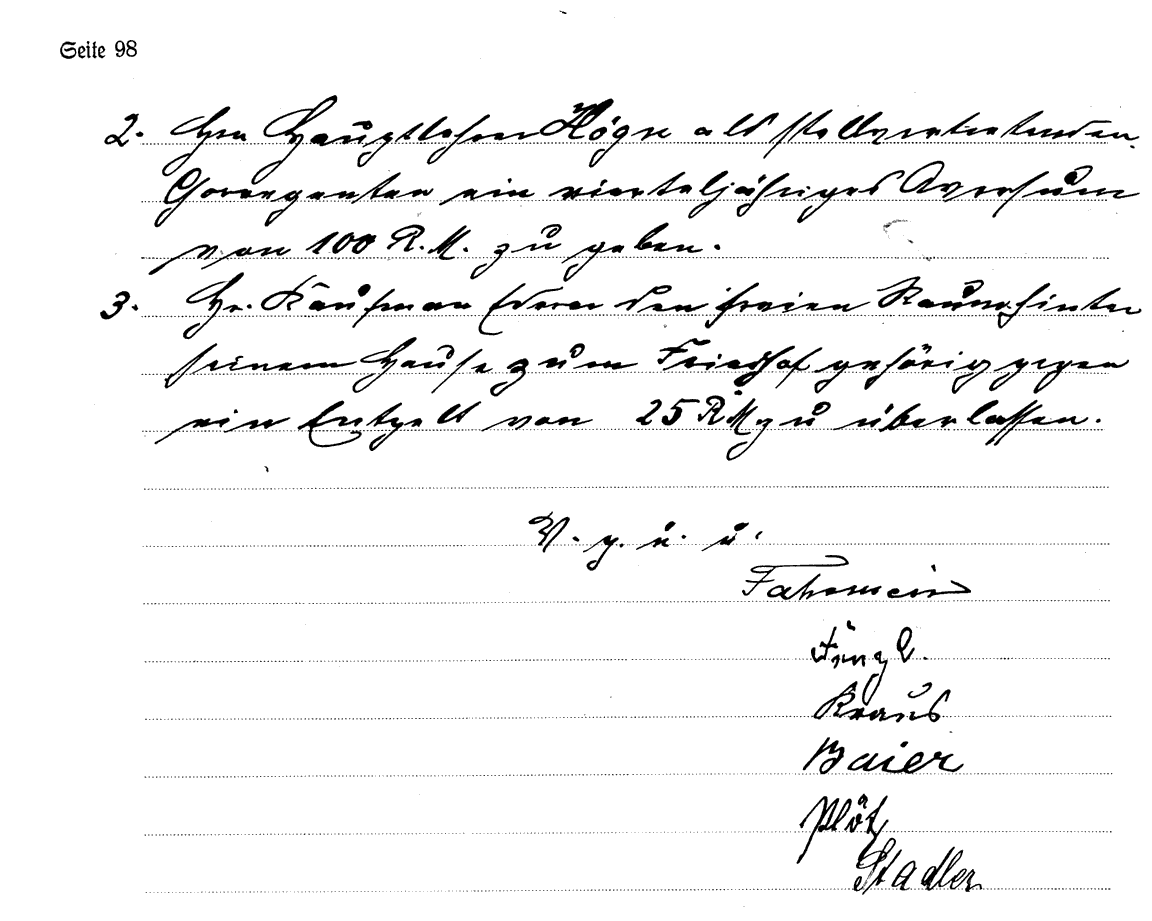 Seite 98
2. Hrn Hauptlehrer Högn als stellvertretenden
Chorregenten ein vierteljähriges Aversum
von 100 R.M. zu geben.
3. Hr. Kaufman Ederer den freien Raum hinter
seinem Hause zum Friedhof gehörig gegen
ein Entgelt von 25 RM zu überlassen.
V. g. u. u.
Fahrmeier
Kraus
Baier
Plötz
Stadler